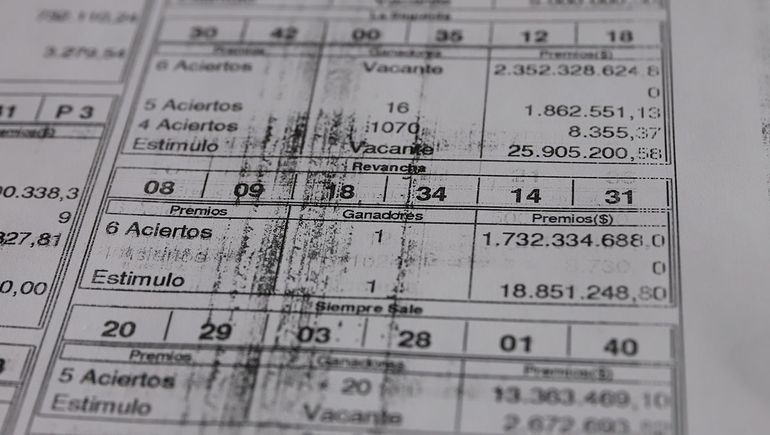 3.279,54
La Segunda
30 42 00 35 12 18
Premios Ganadores Premios($)
6 Aciertos Vacante 2.352.328.624,8
0
5 Aciertos 16 1.862.551,13
4 Aciertos 1070 8.355,37
Estimulo Vacante 25.905.200,58
11 P 3
Revancha
08 09 18 34 14 31
00.338,3
9
Premios Ganadores Premios($)
327,81
6 Aciertos 1 1.732.334.688,0
0
0,00
Estimulo 1 18.851.248,80
Siempre Sale
20 29 03 28 01 40
Premios Ganadores Premios($)
5 Aciertos 20 13.363.469,10
Estimulo Vacante